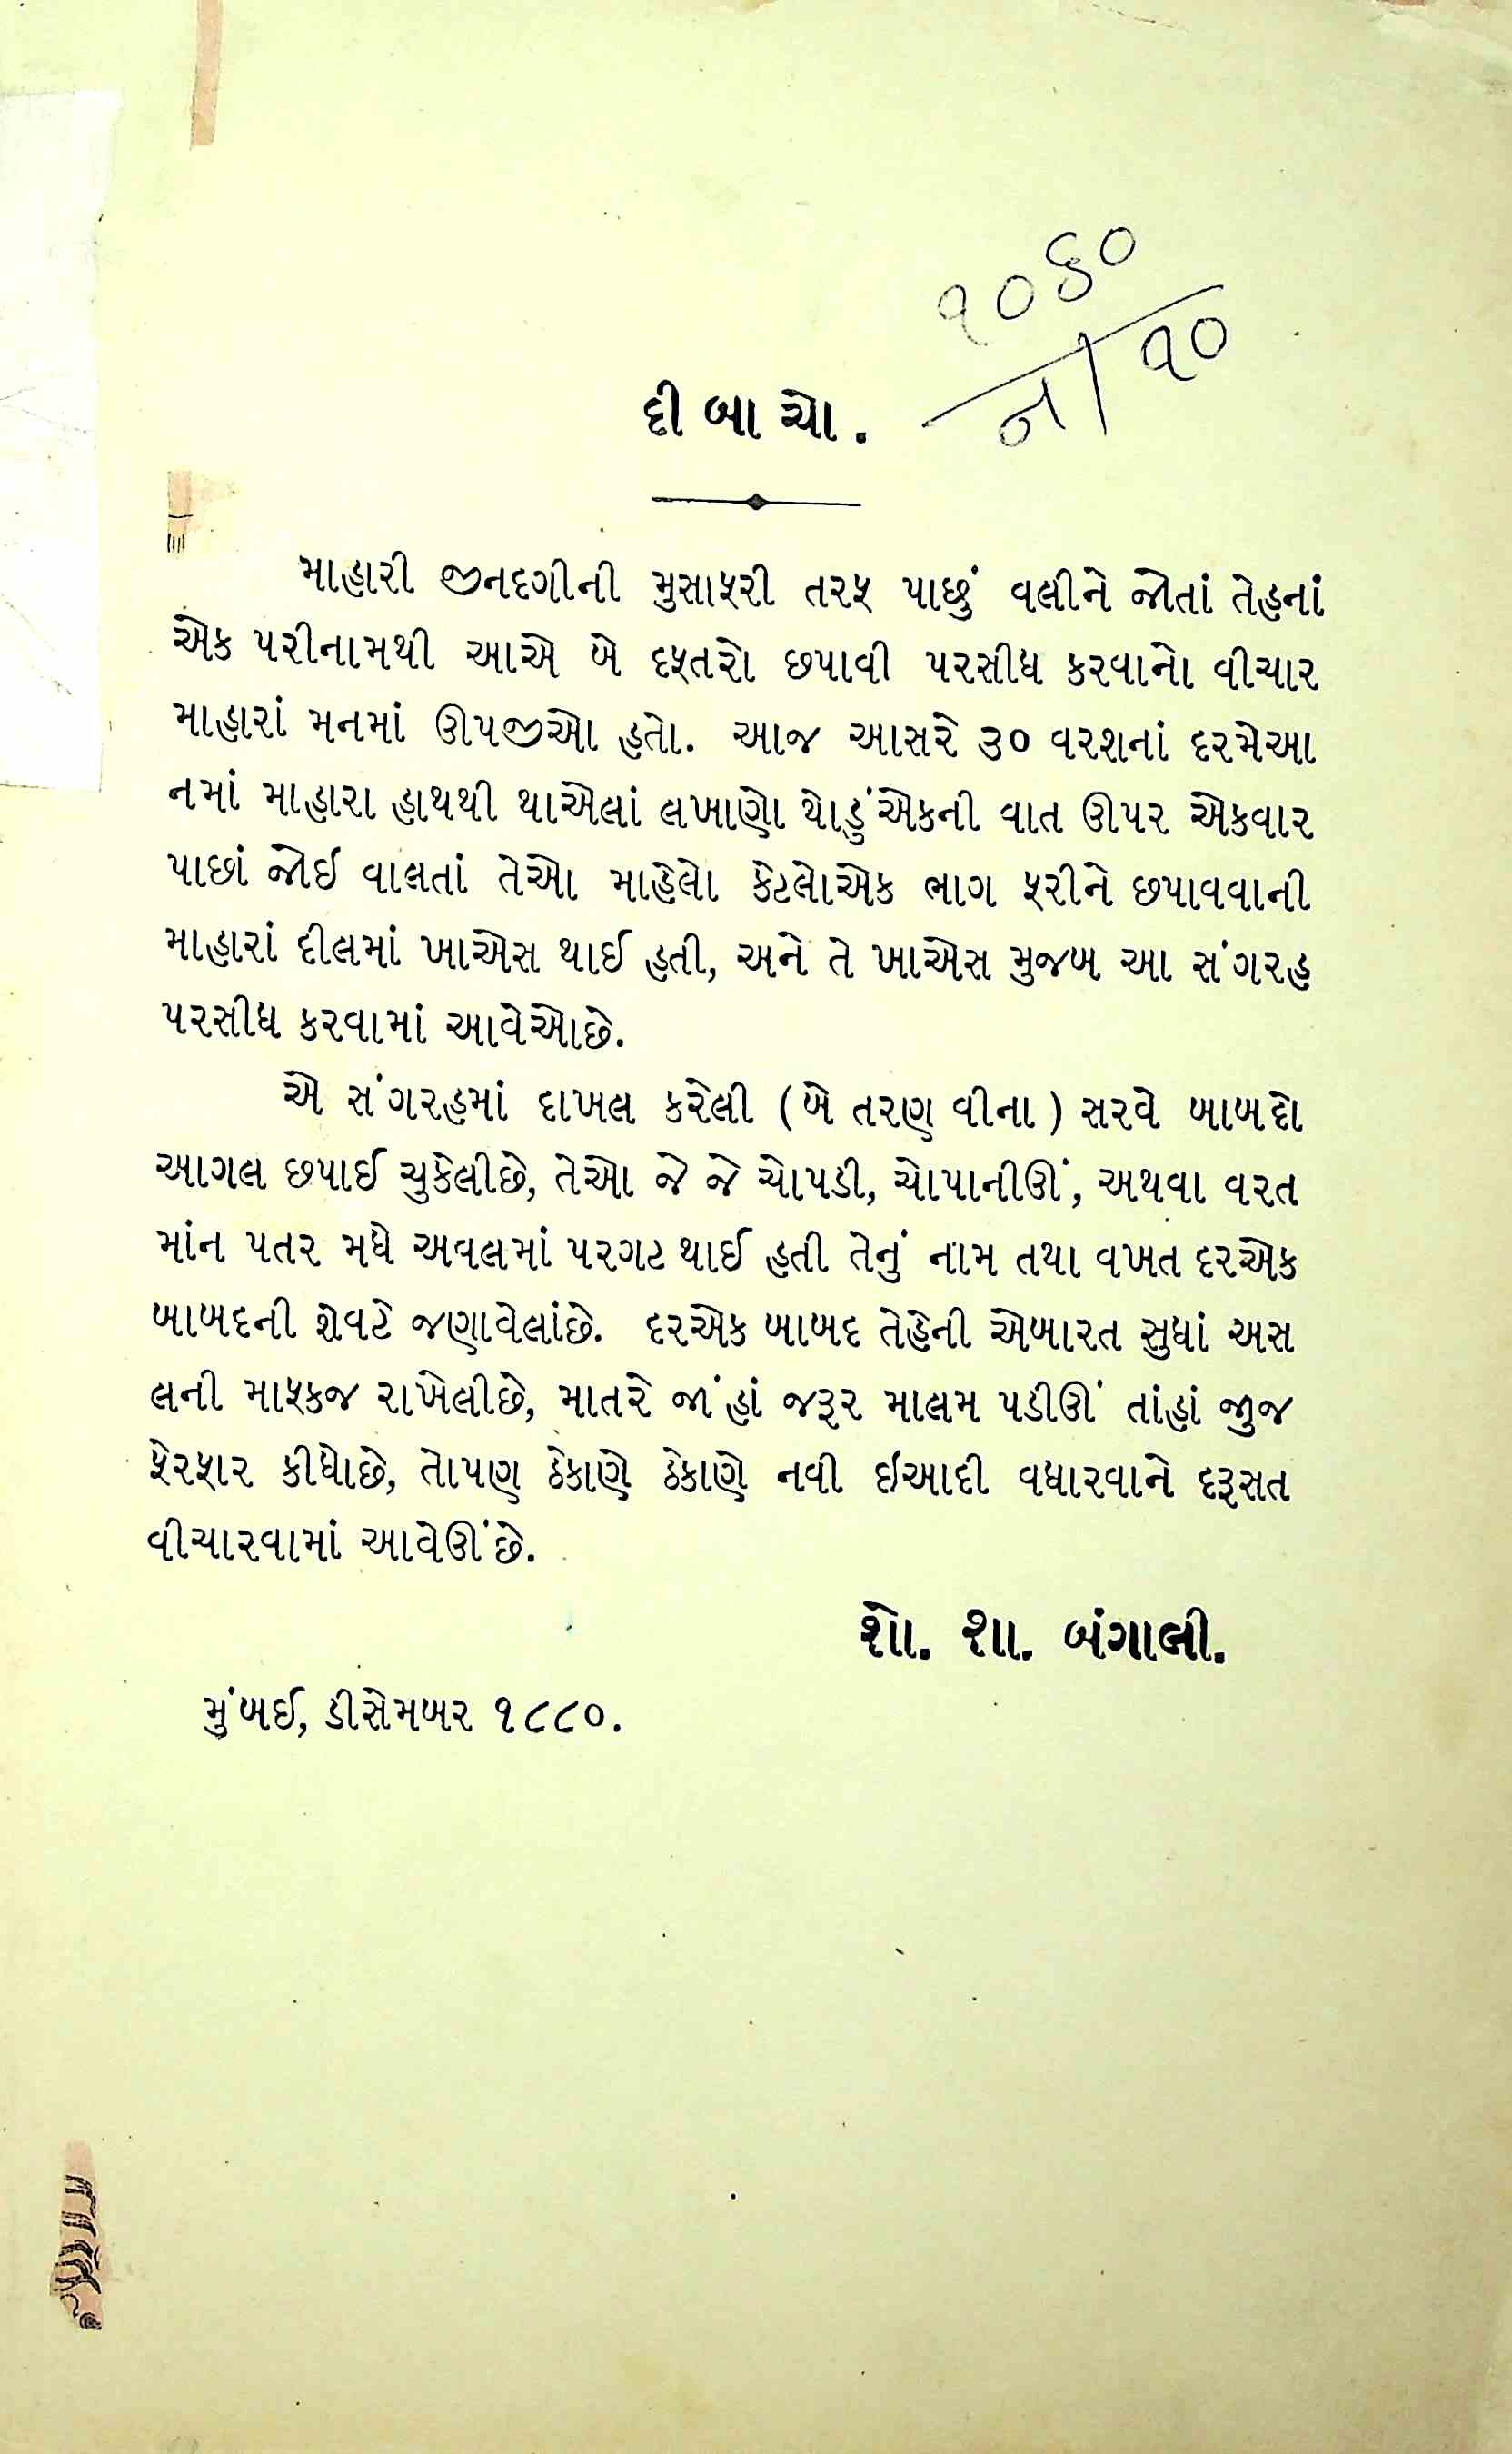 ૧૦૬૦
ના ૧૦
દીબાચો.
માહારી જીનદગીની મુસાફરી તરફ પાછું વલીને જોતાં તેહનાં
એક પરીનામથી આએ બે દફતરો છપાવી પરસીધ કરવાનો વીચાર
માહારાં મનમાં ઊપજીઓ હતો. આજ આસરે ૩૦ વરશનાં દરમેઆ
નમાં માહારા હાથથી થાએલાં લખાણો થોડુંએકની વાત ઊપર એકવાર
પાછાં જોઈ વાલતાં તેઓ માહેલો કેટલોએક ભાગ ફરીને છપાવવાની
માહારાં દીલમાં ખાએસ થાઈ હતી, અને તે ખાએસ મુજબ આ સંગરહ
પરસીધ કરવામાં આવેઓછે.
એ સંગરહમાં દાખલ કરેલી (બે તરણ વીના) સરવે બાબદો
આગલ છપાઈ ચુકેલીછે, તેઓ જે જે ચોપડી, ચોપાનીઊં, અથવા વરત
માંન પતર મધે અવલમાં પરગટ થાઈ હતી તેનું નામ તથા વખત દરએક
બાબદની શેવટે જણાવેલાંછે. દરએક બાબદ તેહેની એબારત સુધાં અસ
લની માફકજ રાખેલીછે, માતરે જાંહાં જરૂર માલમ પડીઊં તાંહાં જુજ
ફેરફાર કીધોછે, તોપણ ઠેકાણે ઠેકાણે નવી ઈઆદી વધારવાને દરૂસત
વીચારવામાં આવેઊંછે.
શો. શા. બંગાલી.
મુંબઈ, ડીસેમબર ૧૮૮૦.